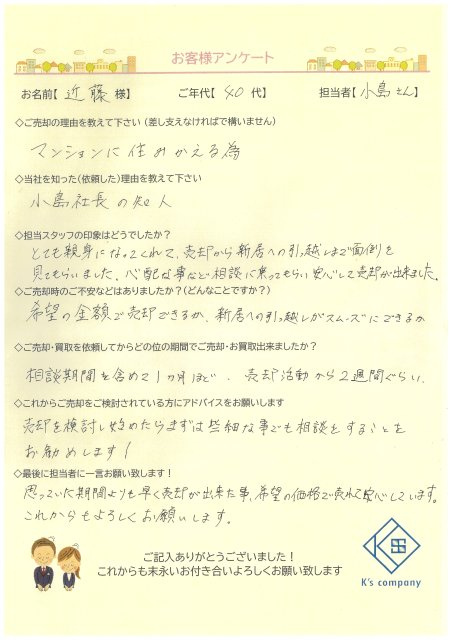 お客様アンケート
お名前【 近藤 様】 ご年代【 40 代】 担当者【 小島さん 】
◇ご売却の理由を教えて下さい(差し支えなければで構いません)
マンションに住みかえる為
◇当社を知った(依頼した)理由を教えて下さい
小島社長の知人
◇担当スタッフの印象はどうでしたか?
とても親身になってくれて、売却から新居への引っ越しまで面倒を
見てもらいました。心配な事など相談に乗ってもらい安心して売却が出来ました。
◇ご売却時のご不安などはありましたか?(どんなことですか?)
希望の金額で売却できるか、新居への引っ越しがスムーズにできるか
◇ご売却・買取を依頼してからどの位の期間でご売却・お買取出来ましたか?
相談期間を含めて1ヶ月ほど、売却活動から2週間ぐらい。
◇これからご売却をご検討されている方にアドバイスをお願いします
売却を検討し始めたらまずは些細な事でも相談をすることを
お勧めします!
◇最後に担当者に一言お願い致します!
思っていた期間よりも早く売却が出来た事、希望の価格で売れて安心しています。
これからもよろしくお願いします。
ご記入ありがとうございました!
これからも末永いお付き合いよろしくお願い致します
K's company